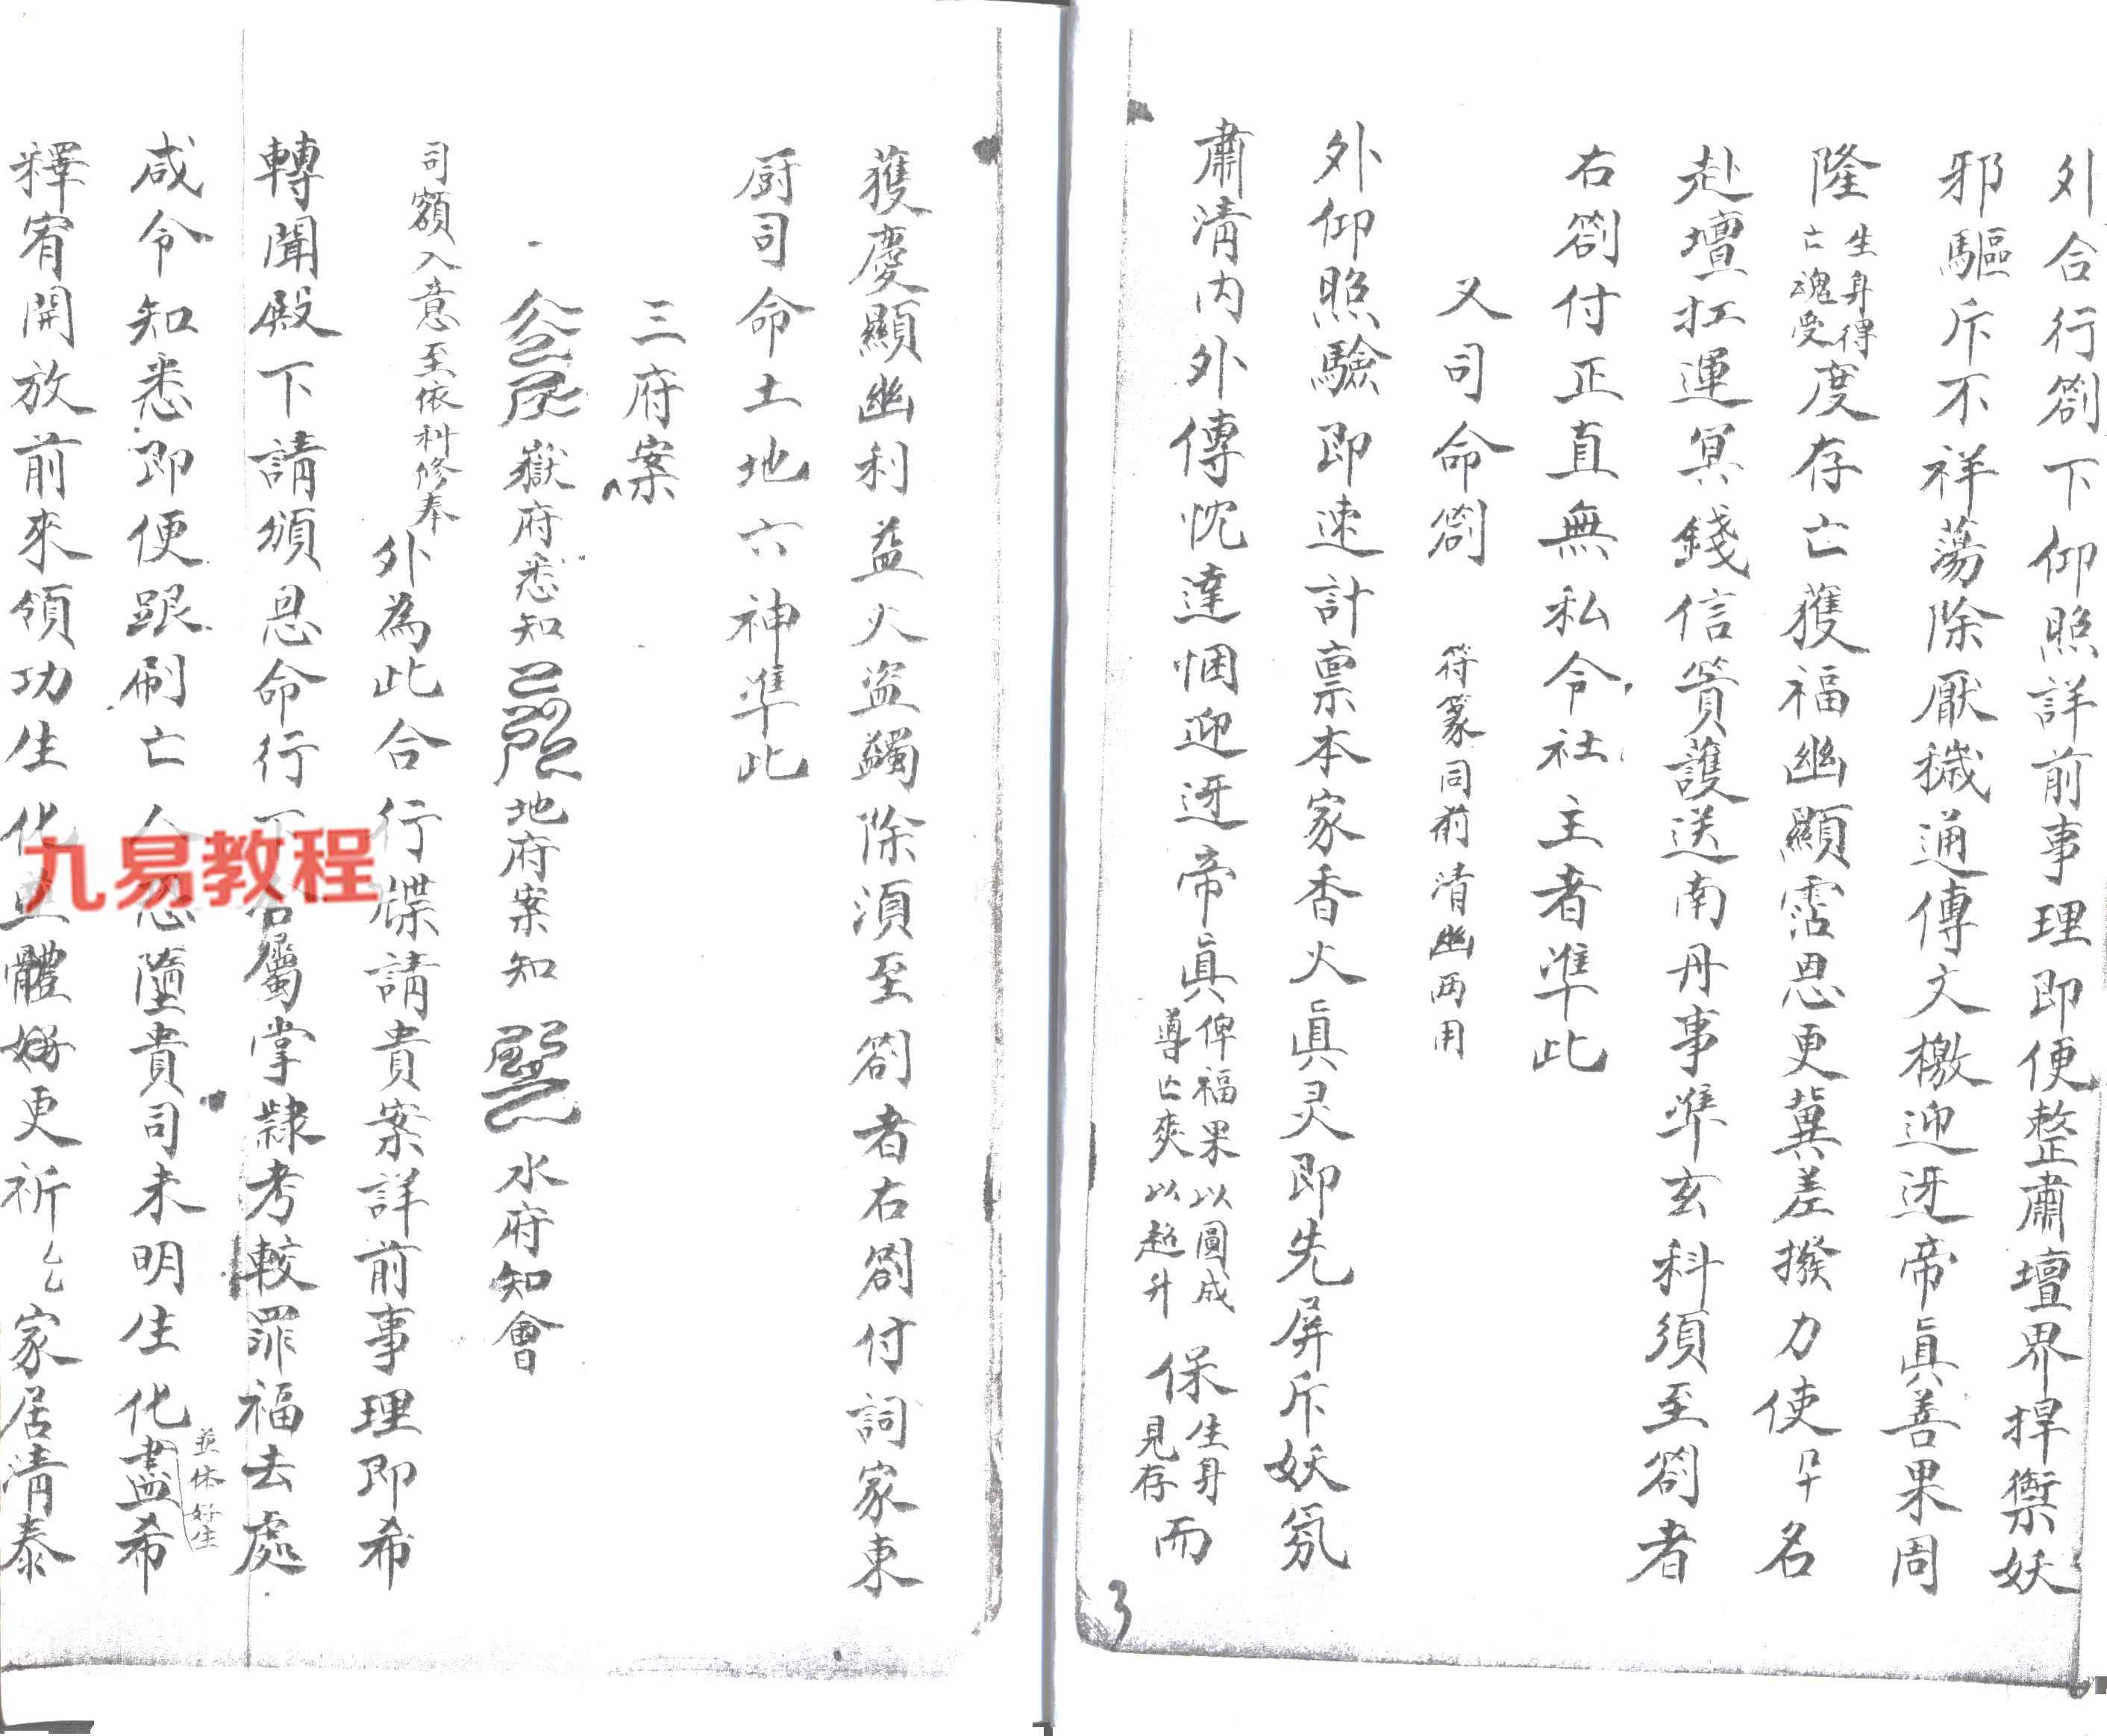 外合行劄下仰照詳前事理即便整肅壇界捍禦妖
邪驅斥不祥蕩除厭穢通傳文檄迎迓帝眞善果周
隆生身得亡魂受度存亡獲福幽顯霑恩更冀差撥力使名
赴壇扛運冥錢信篢護送南丹事準玄科須至劄者
右劄付正直無私令社主者準此
又司命劄 符篆同前清幽両用
外仰照驗即速計稟本家香火眞灵即先屏斥妖氛
肅清內外傳忱達悃迎迓帝眞俾福果以圓成導亡爽以超升保生身見存而
獲慶顯幽利益火盜蠲除須至劄者右劄付詞家東
厨司命土地六神準此
三府案
嶽府悉知 地府案知 水府知會
司額入意至依科修奉
外為此合行牒請貴案詳前事理即希
轉聞殿下請頒恩命行下合屬掌隸考較罪福去處
咸令知悉即便跟刷亡 墮貴司未明生化盡希
並休好生
釋宥開放前來領功生化 體 更祈厶厶家居清泰
九易教程
3